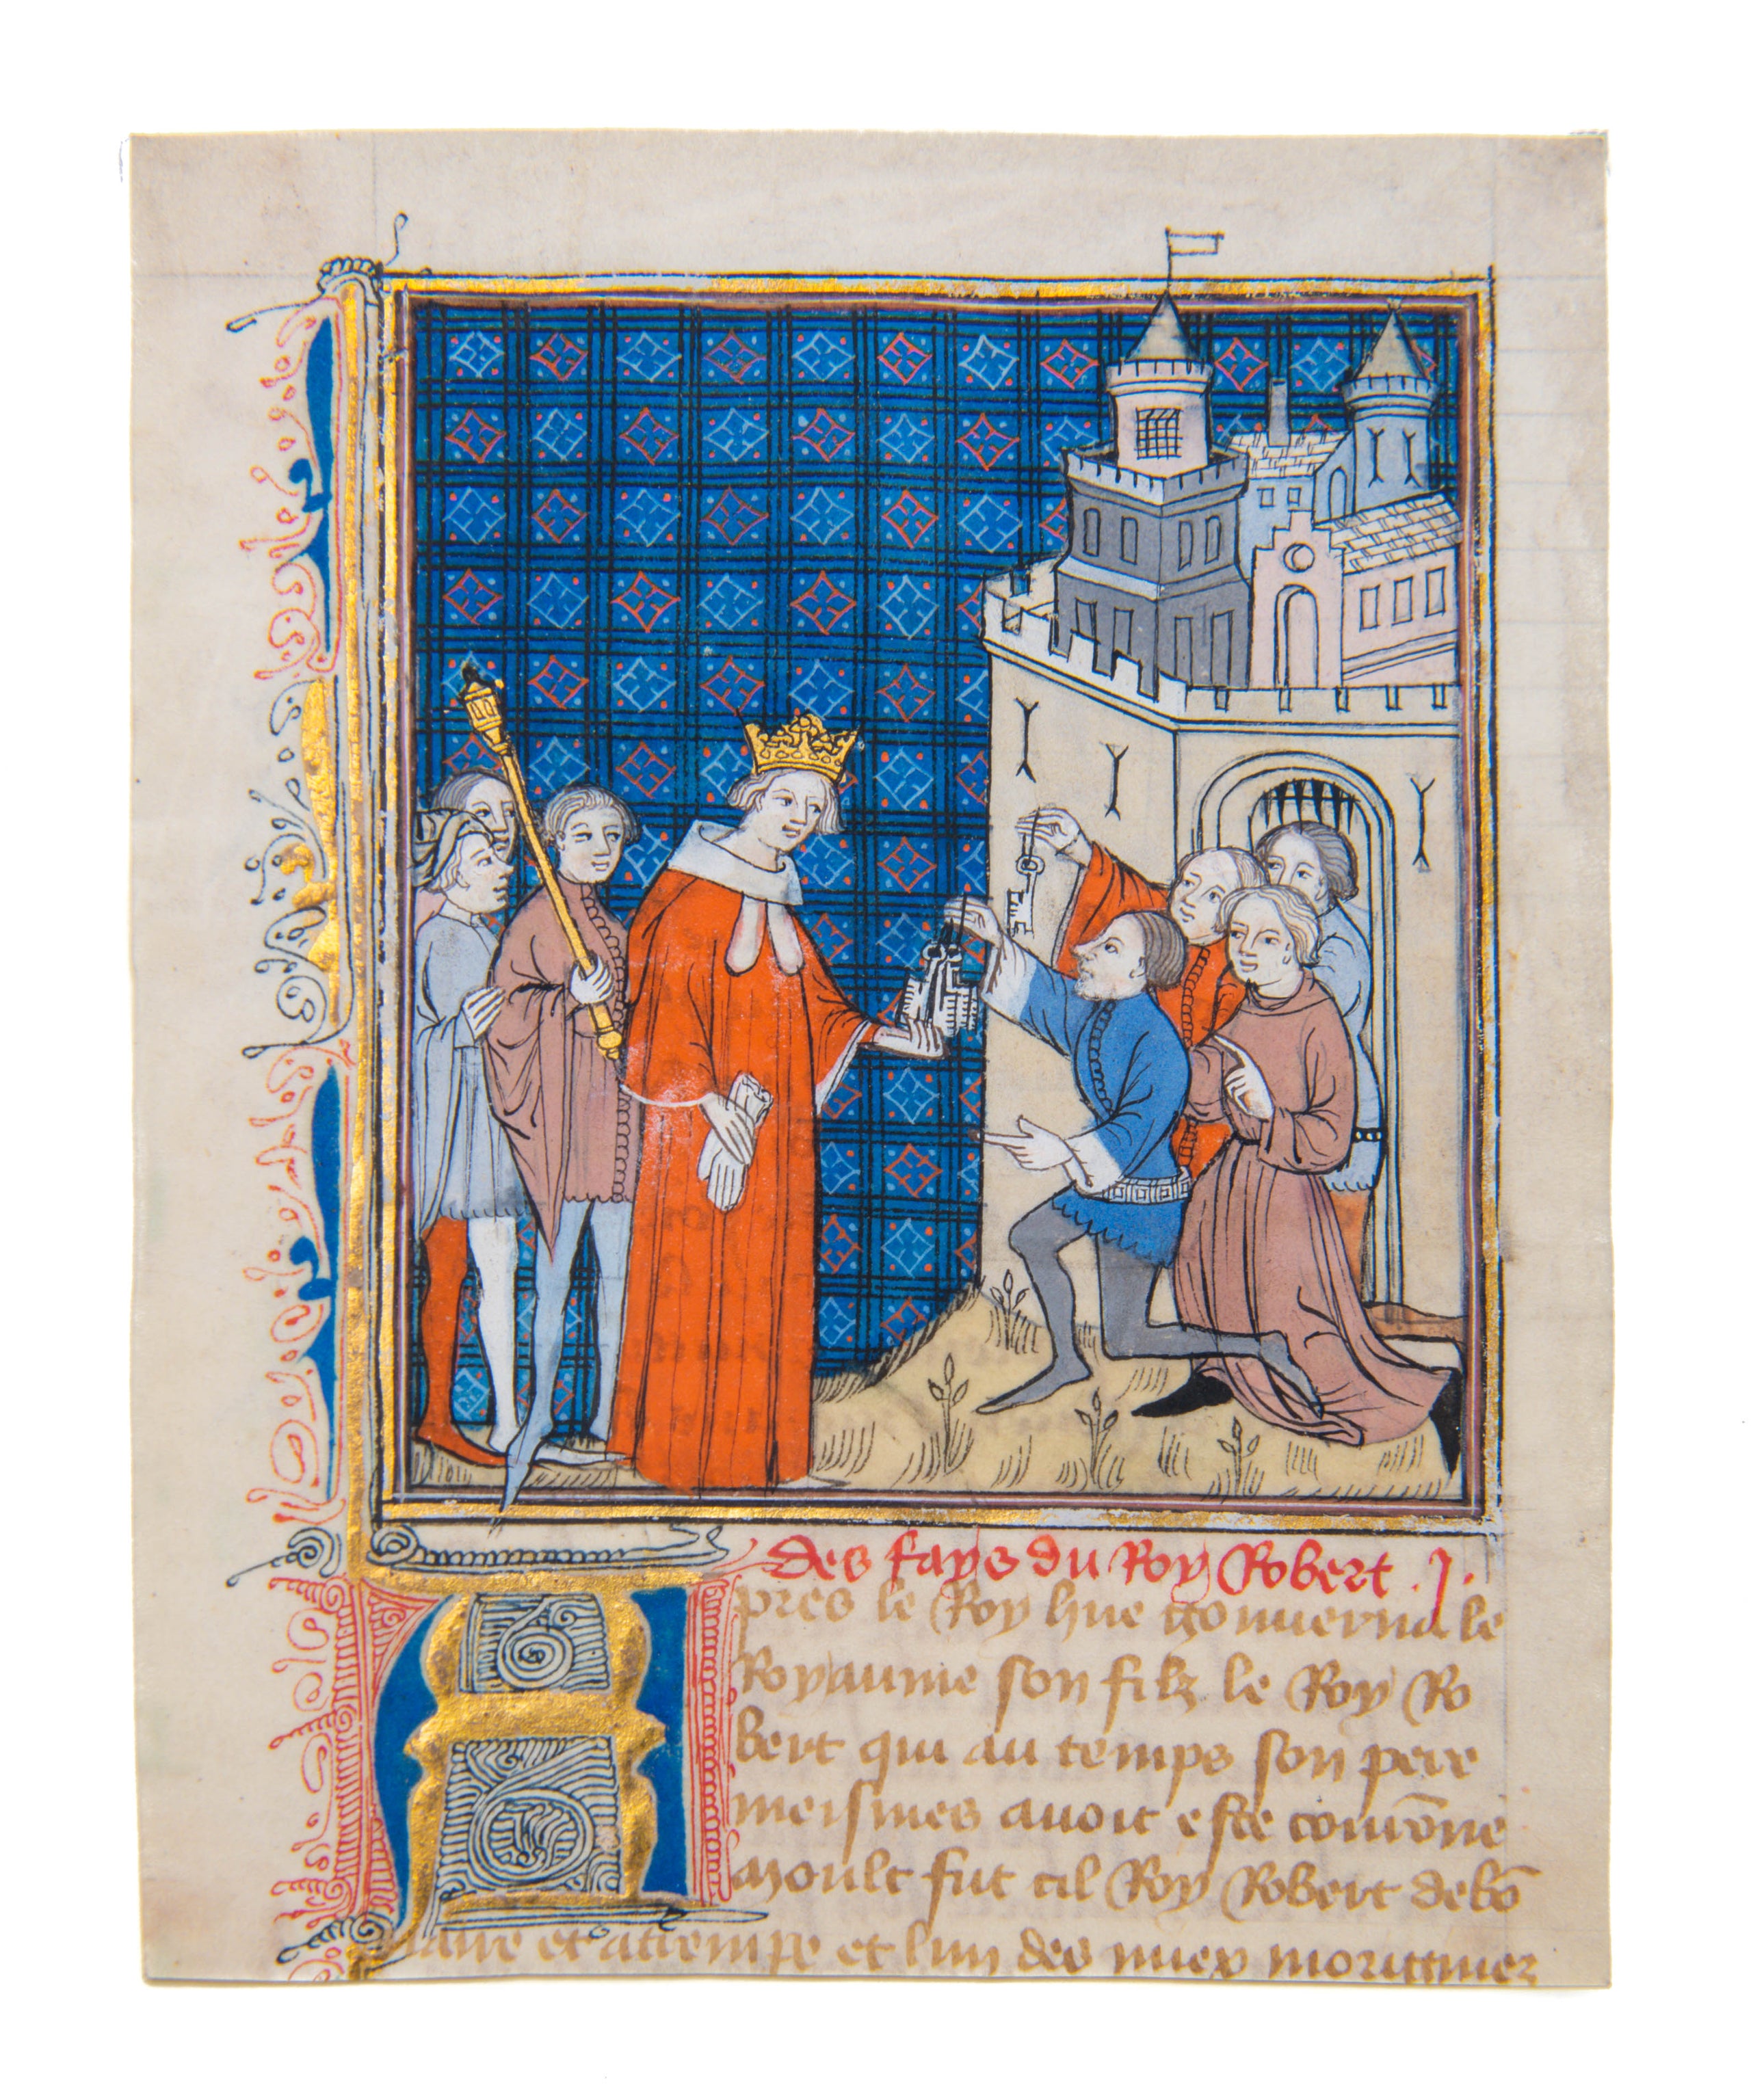 des fays du Roy Robert .j.
Apres le Roy hue gouuerna le
Royaume son filz le Roy Ro
bert qui au temps son pere
meismes auoit este couronne
Moult fut cil Roy Robert de bō
aire et attempe et lun des miex